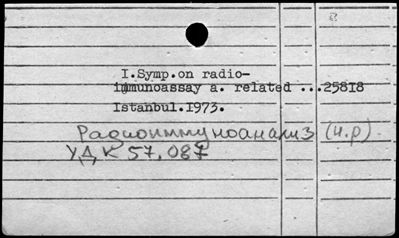 I.Symp.on radio-
immunoassay a. related ...25818
Istanbul.1973.
Радиоиммуноанализ (и.р)
УДК 57.087